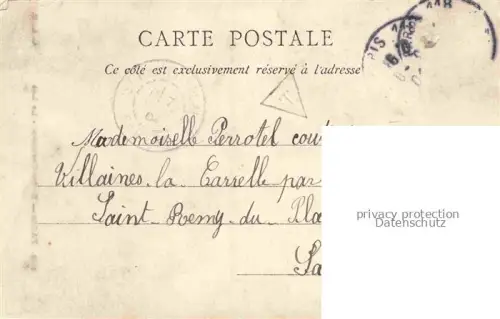 CARTE POSTALE
Ce côté est exclusivement réservé à l'adresse
Mademoiselle Perrotel
Villaines-la Carielle par
Saint-Remy-du-Pla
privacy protection
Datenschutz
Sa